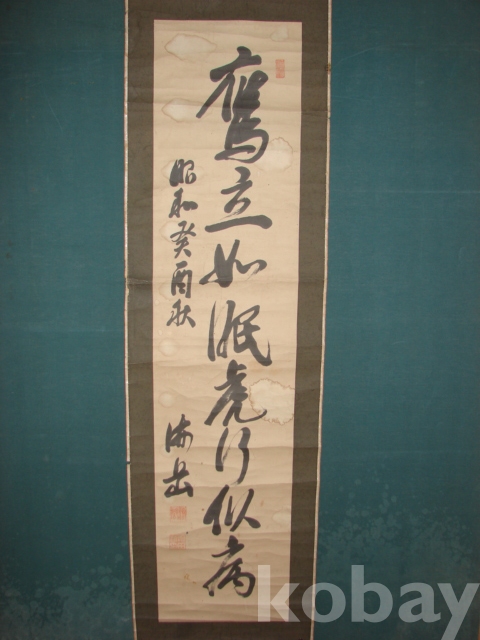 鷹立如眠虎行似病
昭和癸酉秋
海岳
kobay